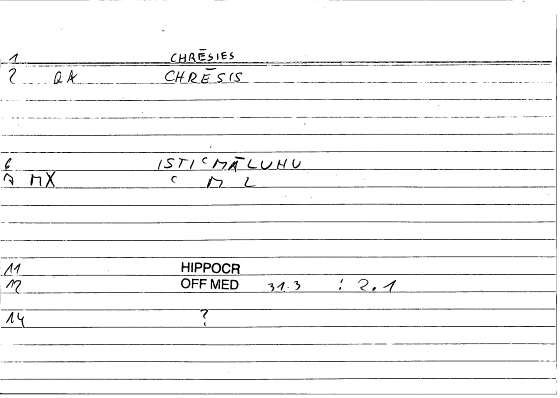 1 CHRĒSIES
2 QA CHRĒSIS
6 ISTIcMĀLUHU
7 MX c M L
11 HIPPOCR
12 OFF MED 31.3 : 2,1
14 ?